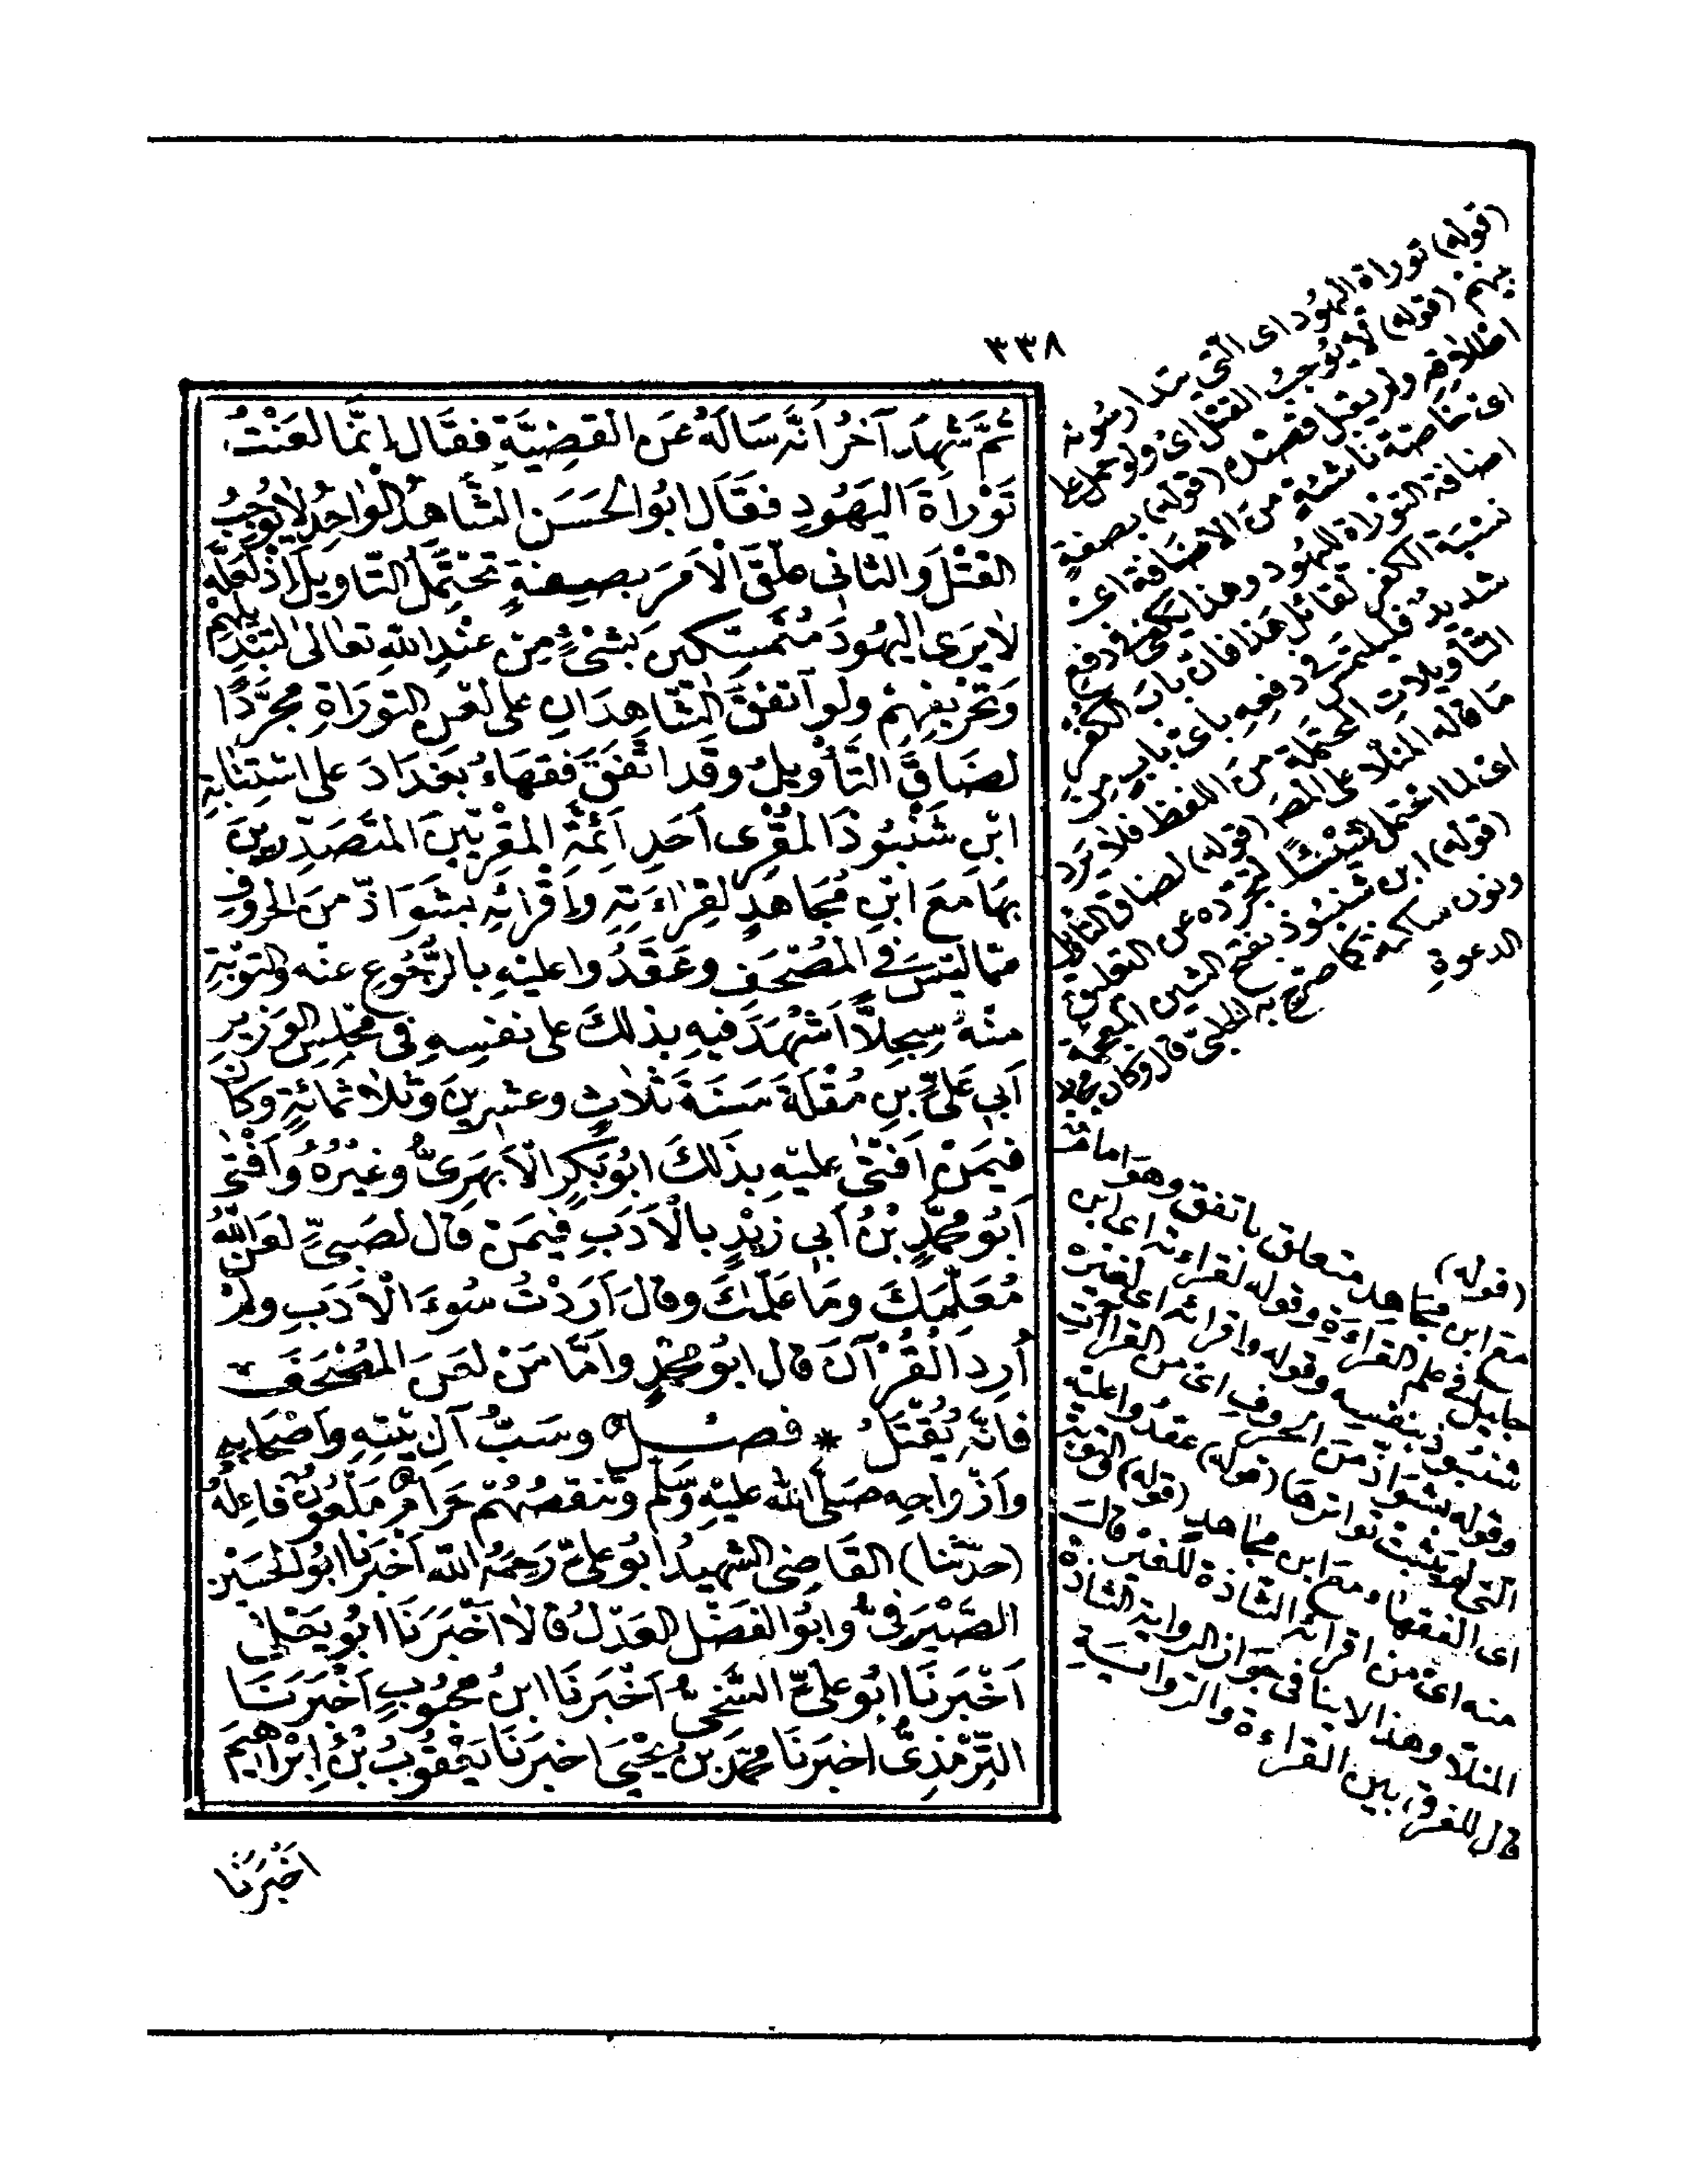 ٣٣٨
ثُمَّ شَهِدَ آخَرُ اَنَّهُ سَاَلَهُ عَنِ الْقَضِيَّةِ فَقَالَ اِنَّمَا لَعَنْتُ
تَوْرَاةَ الْيَهُودِ فَقَالَ اَبُو الْحَسَنِ الشَّاهِدُ الْوَاحِدُ لَا يُوجِبُ
الْقَتْلَ وَالثَّانِي عَلَّقَ الْاَمْرَ بِصِيفَةٍ تَحْتَمِلُ التَّاْوِيلَ اِذْ لَعَلَّهُ
لَا يَرَى الْيَهُودَ مُتَمَسِّكِينَ بِشَيْءٍ مِنْ عِنْدِ اللهِ تَعَالَى لِتَبْدِيلِهِمْ
وَتَحْرِيفِهِمْ وَلَوِ اتَّفَقَ الشَّاهِدَانِ عَلَى لَعْنِ التَّوْرَاةِ مُجَرَّدًا
لَضَاقَ التَّأْوِيلُ وَقَدِ اتَّفَقَ فُقَهَاءُ بَغْدَادَ عَلَى اسْتِتَابَةِ
ابْنِ شَنَبُوذَ الْمُقْرِى اَحَدِ اَئِمَّةِ الْمُقْرِئِينَ الْمُتَصَدِّرِينَ
بِهَا مَعَ ابْنِ مُجَاهِدٍ لِقِرَاءَتِهِ وَاِقْرَائِهِ بِشَوَاذَّ مِنَ الْحُرُوفِ
مِمَّا لَيْسَ فِي الْمُصْحَفِ وَعَقَدُوا عَلَيْهِ بِالرُّجُوعِ عَنْهُ وَالتَّوْبَةِ
مِنْهُ سِجِلًّا اَشْهَدَ فِيهِ بِذَلِكَ عَلَى نَفْسِهِ فِي مَجْلِسِ الْوَزِيرِ
اَبِي عَلِيِّ بْنِ مُقْلَةَ سَنَةَ ثَلَاثٍ وَعِشْرِينَ وَثَلَاثِمِائَةٍ وَكَانَ
فِيمَنْ اَفْتَى عَلَيْهِ بِذَلِكَ اَبُو بَكْرٍ الْاَبْهَرِيُّ وَغَيْرُهُ وَاَفْتَى
اَبُو مُحَمَّدٍ بْنُ اَبِي زَيْدٍ بِالْاَدَبِ فِيمَنْ قَالَ لِصَبِيٍّ لَعَنَ اللهُ
مُعَلِّمَكَ وَمَا عَلَّمَكَ وَقَالَ اَرَدْتُ سُوءَ الْاَدَبِ وَلَمْ
اُرِدِ الْقُرْآنَ قَالَ اَبُو مُحَمَّدٍ وَاَمَّا مَنْ لَعَنَ الْمُصْحَفَ
فَاِنَّهُ يُقْتَلُ * فصل وَسَبُّ آلِ بَيْتِهِ وَاَصْحَابِهِ
وَاَزْوَاجِهِ صَلَّى اللهُ عَلَيْهِ وَسَلَّمَ وَتَنَقُّصُهُمْ حَرَامٌ مَلْعُونٌ فَاعِلُهُ
(حدّثنا) الْقَاضِي الشَّهِيدُ اَبُو عَلِيٍّ رَحِمَهُ اللهُ اَخْبَرَنَا اَبُو الْحُسَيْنِ
الصَّيْرَفِيُّ وَاَبُو الْفَضْلِ الْعَدْلُ قَالَا اَخْبَرَنَا اَبُو يَعْلَى
اَخْبَرَنَا اَبُو عَلِيٍّ السِّنْجِيُّ اَخْبَرَنَا ابْنُ مَحْبُوبٍ اَخْبَرَنَا
التِّرْمِذِيُّ اَخْبَرَنَا مُحَمَّدُ بْنُ يَحْيَى اَخْبَرَنَا يَعْقُوبُ بْنُ اِبْرَاهِيمَ
اَخْبَرَنَا
(قوله) توراة اليهود اى التى يتدارسونه
بينهم (قوله) لا يوجب القتل اى ولو حمل على
اطلاقه ولم يقبل قصده (قوله) بصفة
اى خاصة ناشئة من الاضافة اعنى
اضافة التوراة لليهود وهذا يكفى فى دفع
نسبة الكفر لقائل هذا فان باب الكفر
شديد فليلتمس فى دفعه باى باب من
التأويلات المحتملة من اللفظ فلا يرد
ما قاله المنلا على المص (قوله) لضاق التأويل
اى لما احتمل شيئا لتجرده عن التعليق
(قوله) ابن شنبوذ بفتح الشين المعجمة
ونون ساكنة كما صرح به الحلبى قال وكان مجاب
الدعوة
(قوله)
مع ابن مجاهد متعلق باتفق وهو امام
جليل فى علم القراءة وقوله لقراءته اى ابن
شنبوذ بنفسه وقوله واقرائه اى لغيره
وقوله بشواذ من الحروف اى من القراآت
التى لم يثبت تواترها (قوله) عقدوا عليه
اى الفقهاء ومع ابن مجاهد (قوله) والتوبة
منه اى من اقرائه الشاذة للغير قالت
المنلا وهذا لاينافى جواز الرواية الشاذة
قال للفرق بين القراءة والرواية